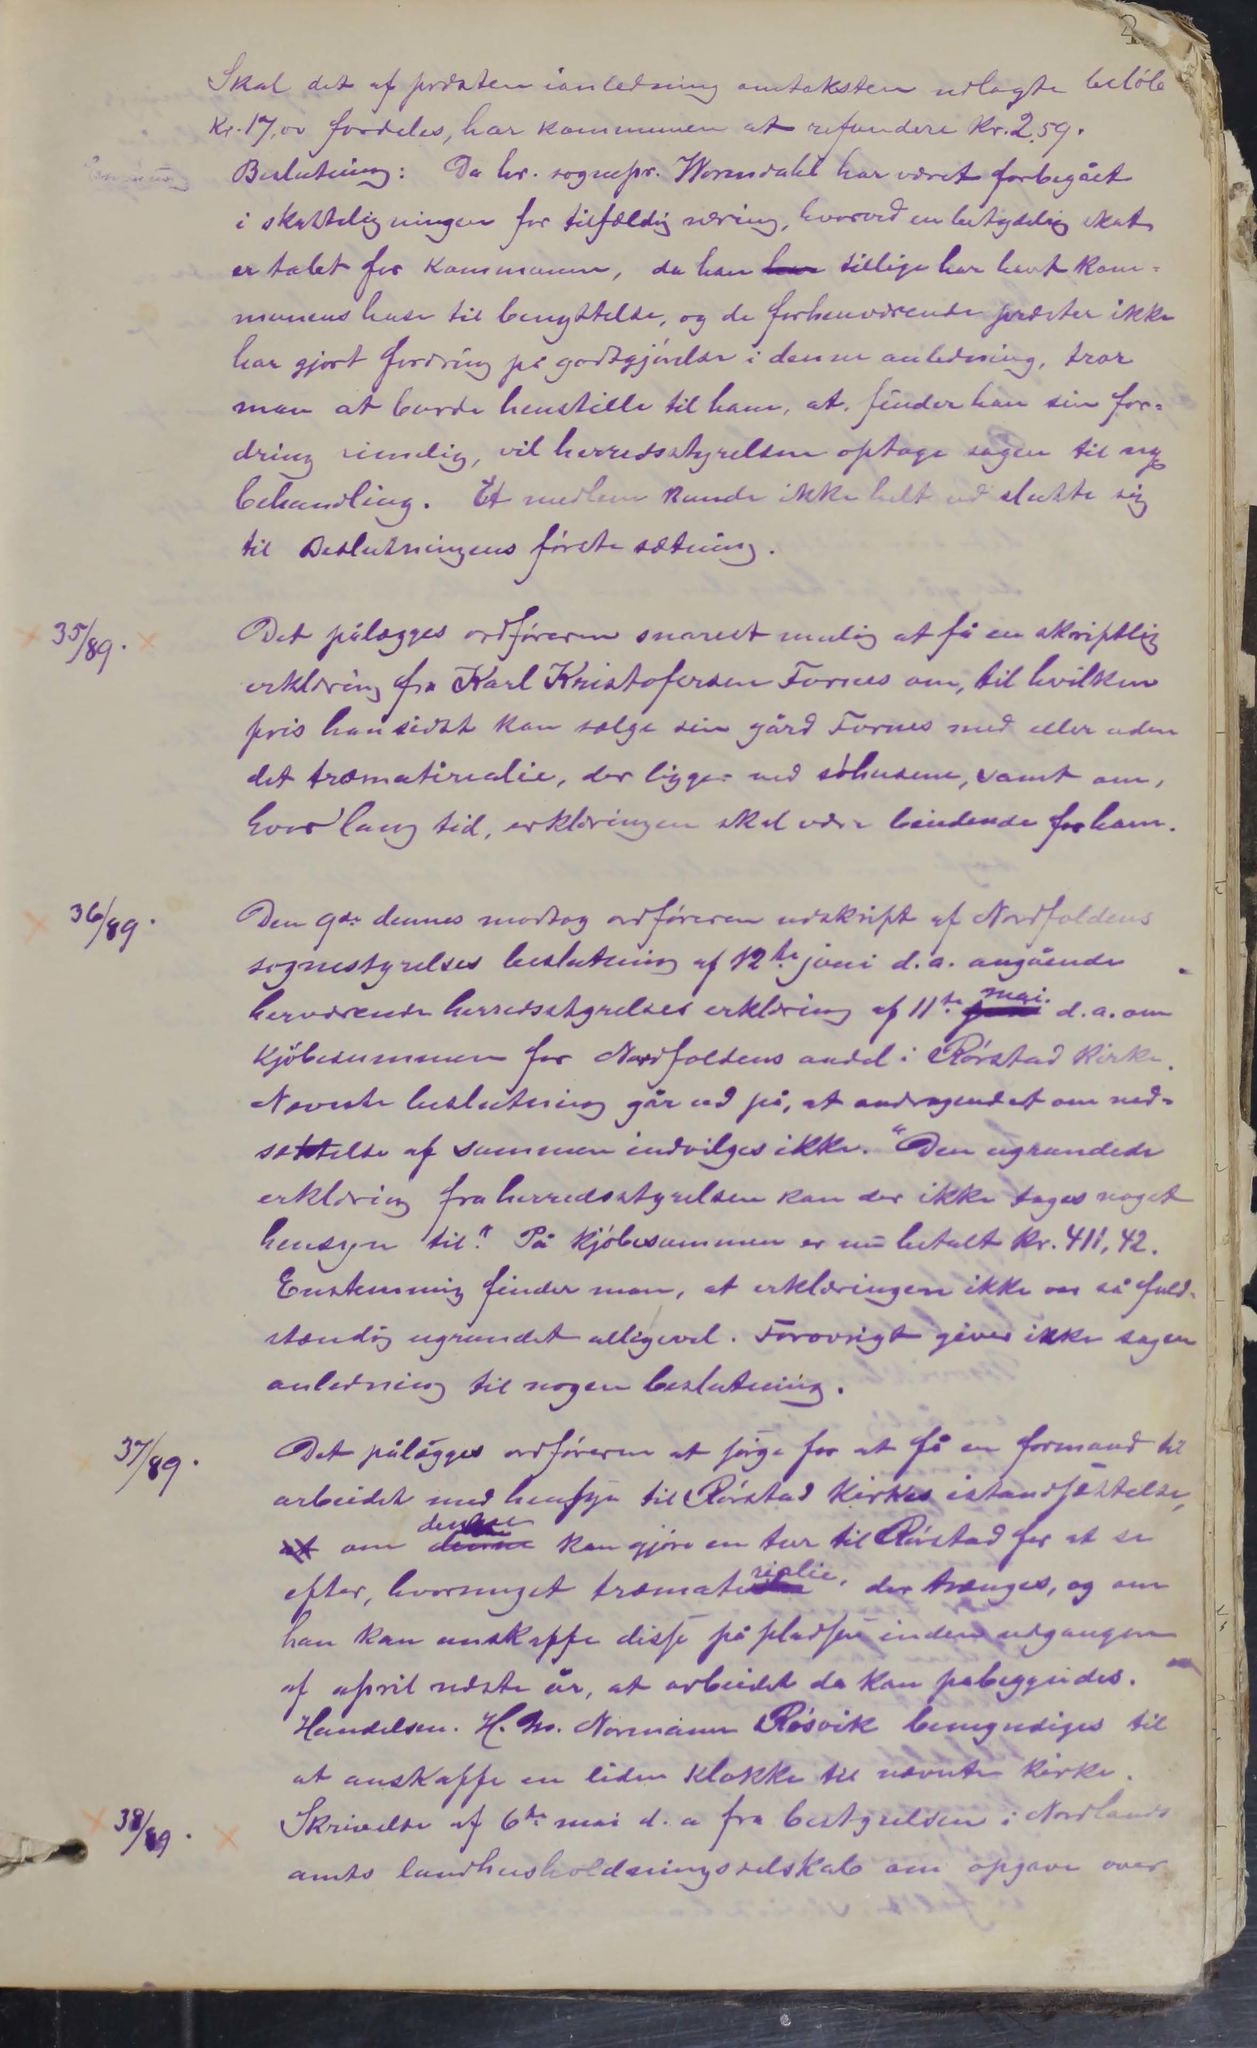 Skal det af præsten ianledning amtaksten udlagte beløb
Kr. 17,00 fordeles, har kommunen at refundere Kr. 2,59.
Beslutning: Da hr. sognepr. Wormdahl har været forbegået
i skatteligningen for tilfældig næring, hvorved en betydelig skat
er tabt for kommunen, da han har tillige har havt kom-
munens huse til benyttelse, og de forhenværende præster ikke
har gjort fordring på godtgjörelse i denne anledning, tror
man at burde henstille til ham, at finder han sin for-
dring rimelig, vil herredsstyrelsen optage sagen til ny
behandling. Et medlem kunde ikke helt ud slutte sig
til Beslutningens förste sætning.
35/89. Det pålægges ordföreren snarest mulig at få en skriftlig
erklæring fra Karl Kristofersen Fornes om, til hvilken
pris han sidst kan sælge sin gård Fornes med eller uden
det træmatirealie, der ligger ved söhusene, samt om,
hvor lang tid, erklæringen skal være bindende for ham.
36/89. Den 9de dennes modtog ordföreren udskript af Nordfoldens
sognestyrelses beslutning af 12te juni d.a. angående
herværende herredsstyrelses erklæring af 11te mai d.a. om
kjöbesummen for Nordfoldens andel i Rörstad kirke.
Nævnte beslutning går ud på, at andragendet om ned-
sættelse af summen indvilges ikke. "Den ugrundede
erklæring fra herredsstyrelsen kan der ikke tages noget
hensyn til." På kjöbesummen er nu betalt Kr. 411,42.
Enstemmig finder man, at erklæringen ikke var så fuld-
stændig ugrundet alligevel. Forøvrigt giver ikke sagen
anledning til nogen beslutning.
37/89. Det pålægges ordföreren at sörge for at få en formand til
arbeidet med hensyn til Rörstad kirkes istandsættelse,
at om denne kan gjöre en tur til Rörstad for at se
efter, hvormeget træmaterialie, der trænges, og om
han kan anskaffe disse på pladsen inden udgangen
af april næste år, at arbeidet da kan påbegyndes.
Handelsm. H. M. Normann Rösvik bemyndiges til
at anskaffe en liden klokke til nævnte kirke.
38/89. Skrivelse af 6te mai d. a fra bestyrelsen i Nordlands
amts landhusholdningsselskab om opgave over